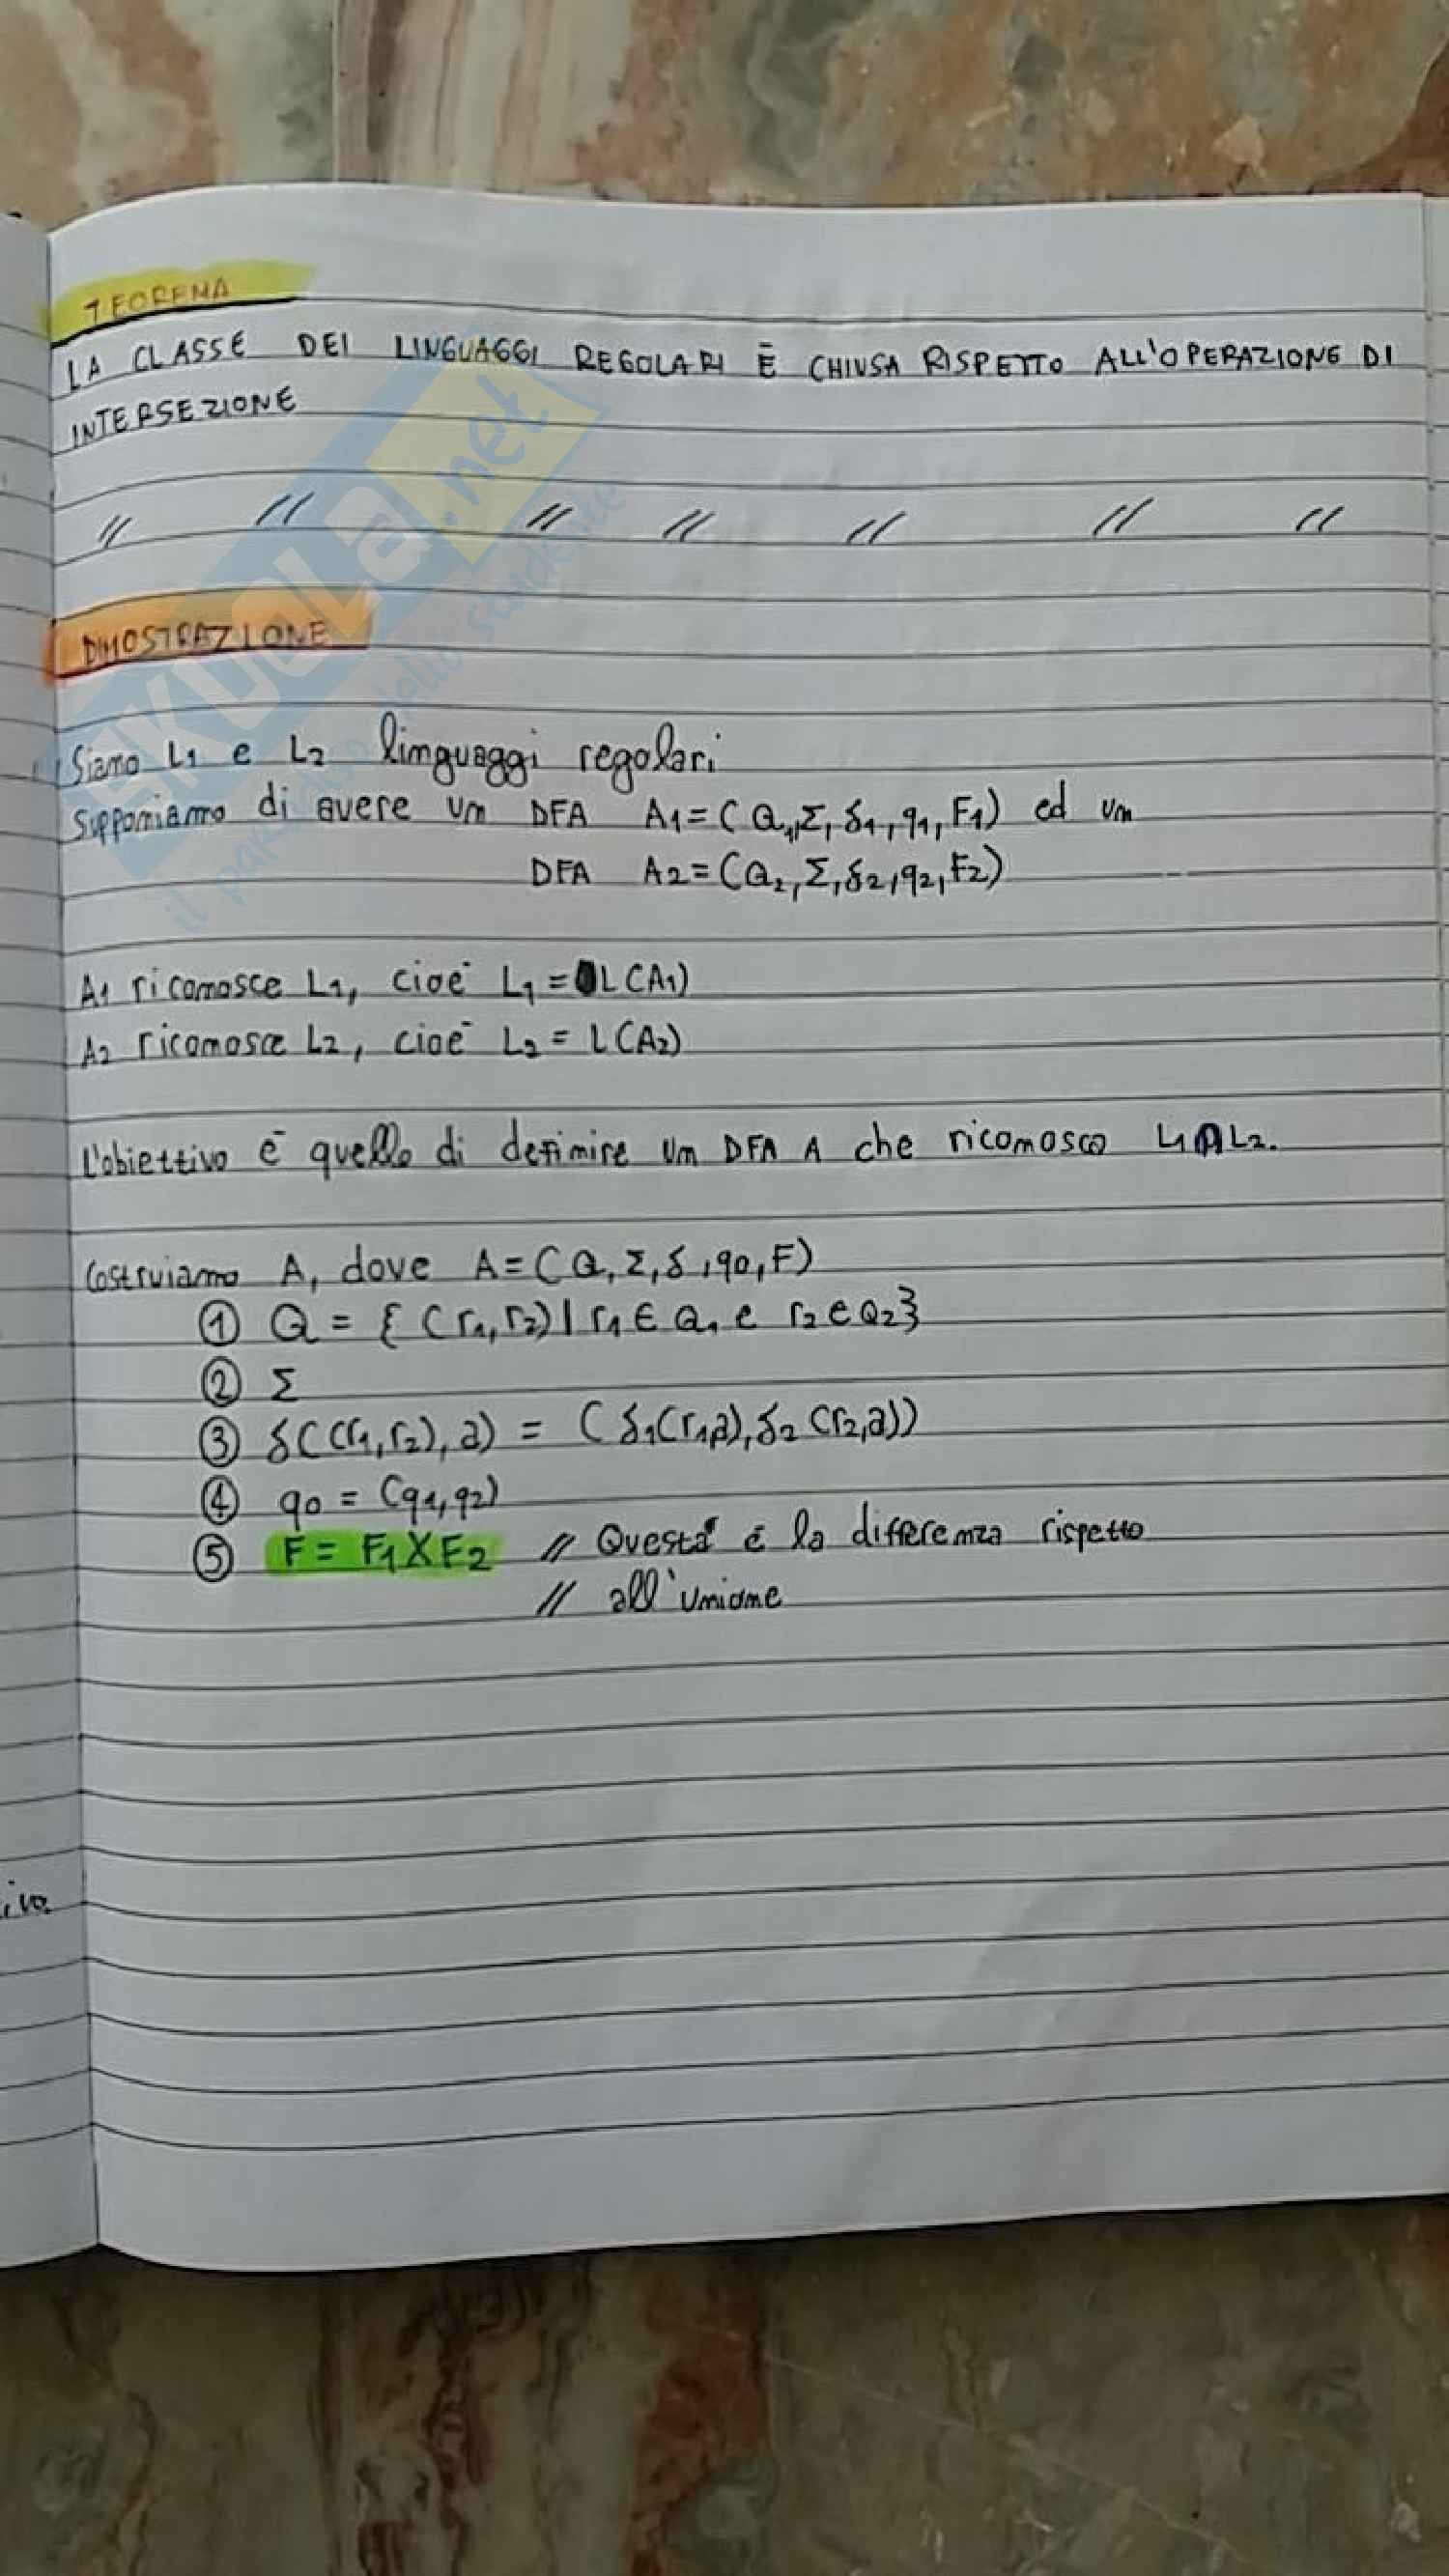 TEOREMA
LA CLASSE DEI LINGUAGGI REGOLARI È CHIUSA RISPETTO ALL'OPERAZIONE DI
INTERSEZIONE
// // // // // // //
DIMOSTRAZIONE
Siano L1 e L2 linguaggi regolari
Supponiamo di avere un DFA A1=(Q1,Σ,δ1,q1,F1) ed un
DFA A2=(Q2,Σ,δ2,q2,F2)
A1 riconosce L1, cioè L1=L(A1)
A2 riconosce L2, cioè L2=L(A2)
L'obiettivo è quello di definire un DFA A che riconosca L1∩L2.
Costruiamo A, dove A=(Q,Σ,δ,q0,F)
① Q = {(r1,r2)|r1∈Q1 e r2∈Q2}
② Σ
③ δ((r1,r2),a) = (δ1(r1,a),δ2(r2,a))
④ q0 = (q1,q2)
⑤ F = F1XF2 // Questa è la differenza rispetto
// all'unione
SKUOLA.net
il paradiso dello studente